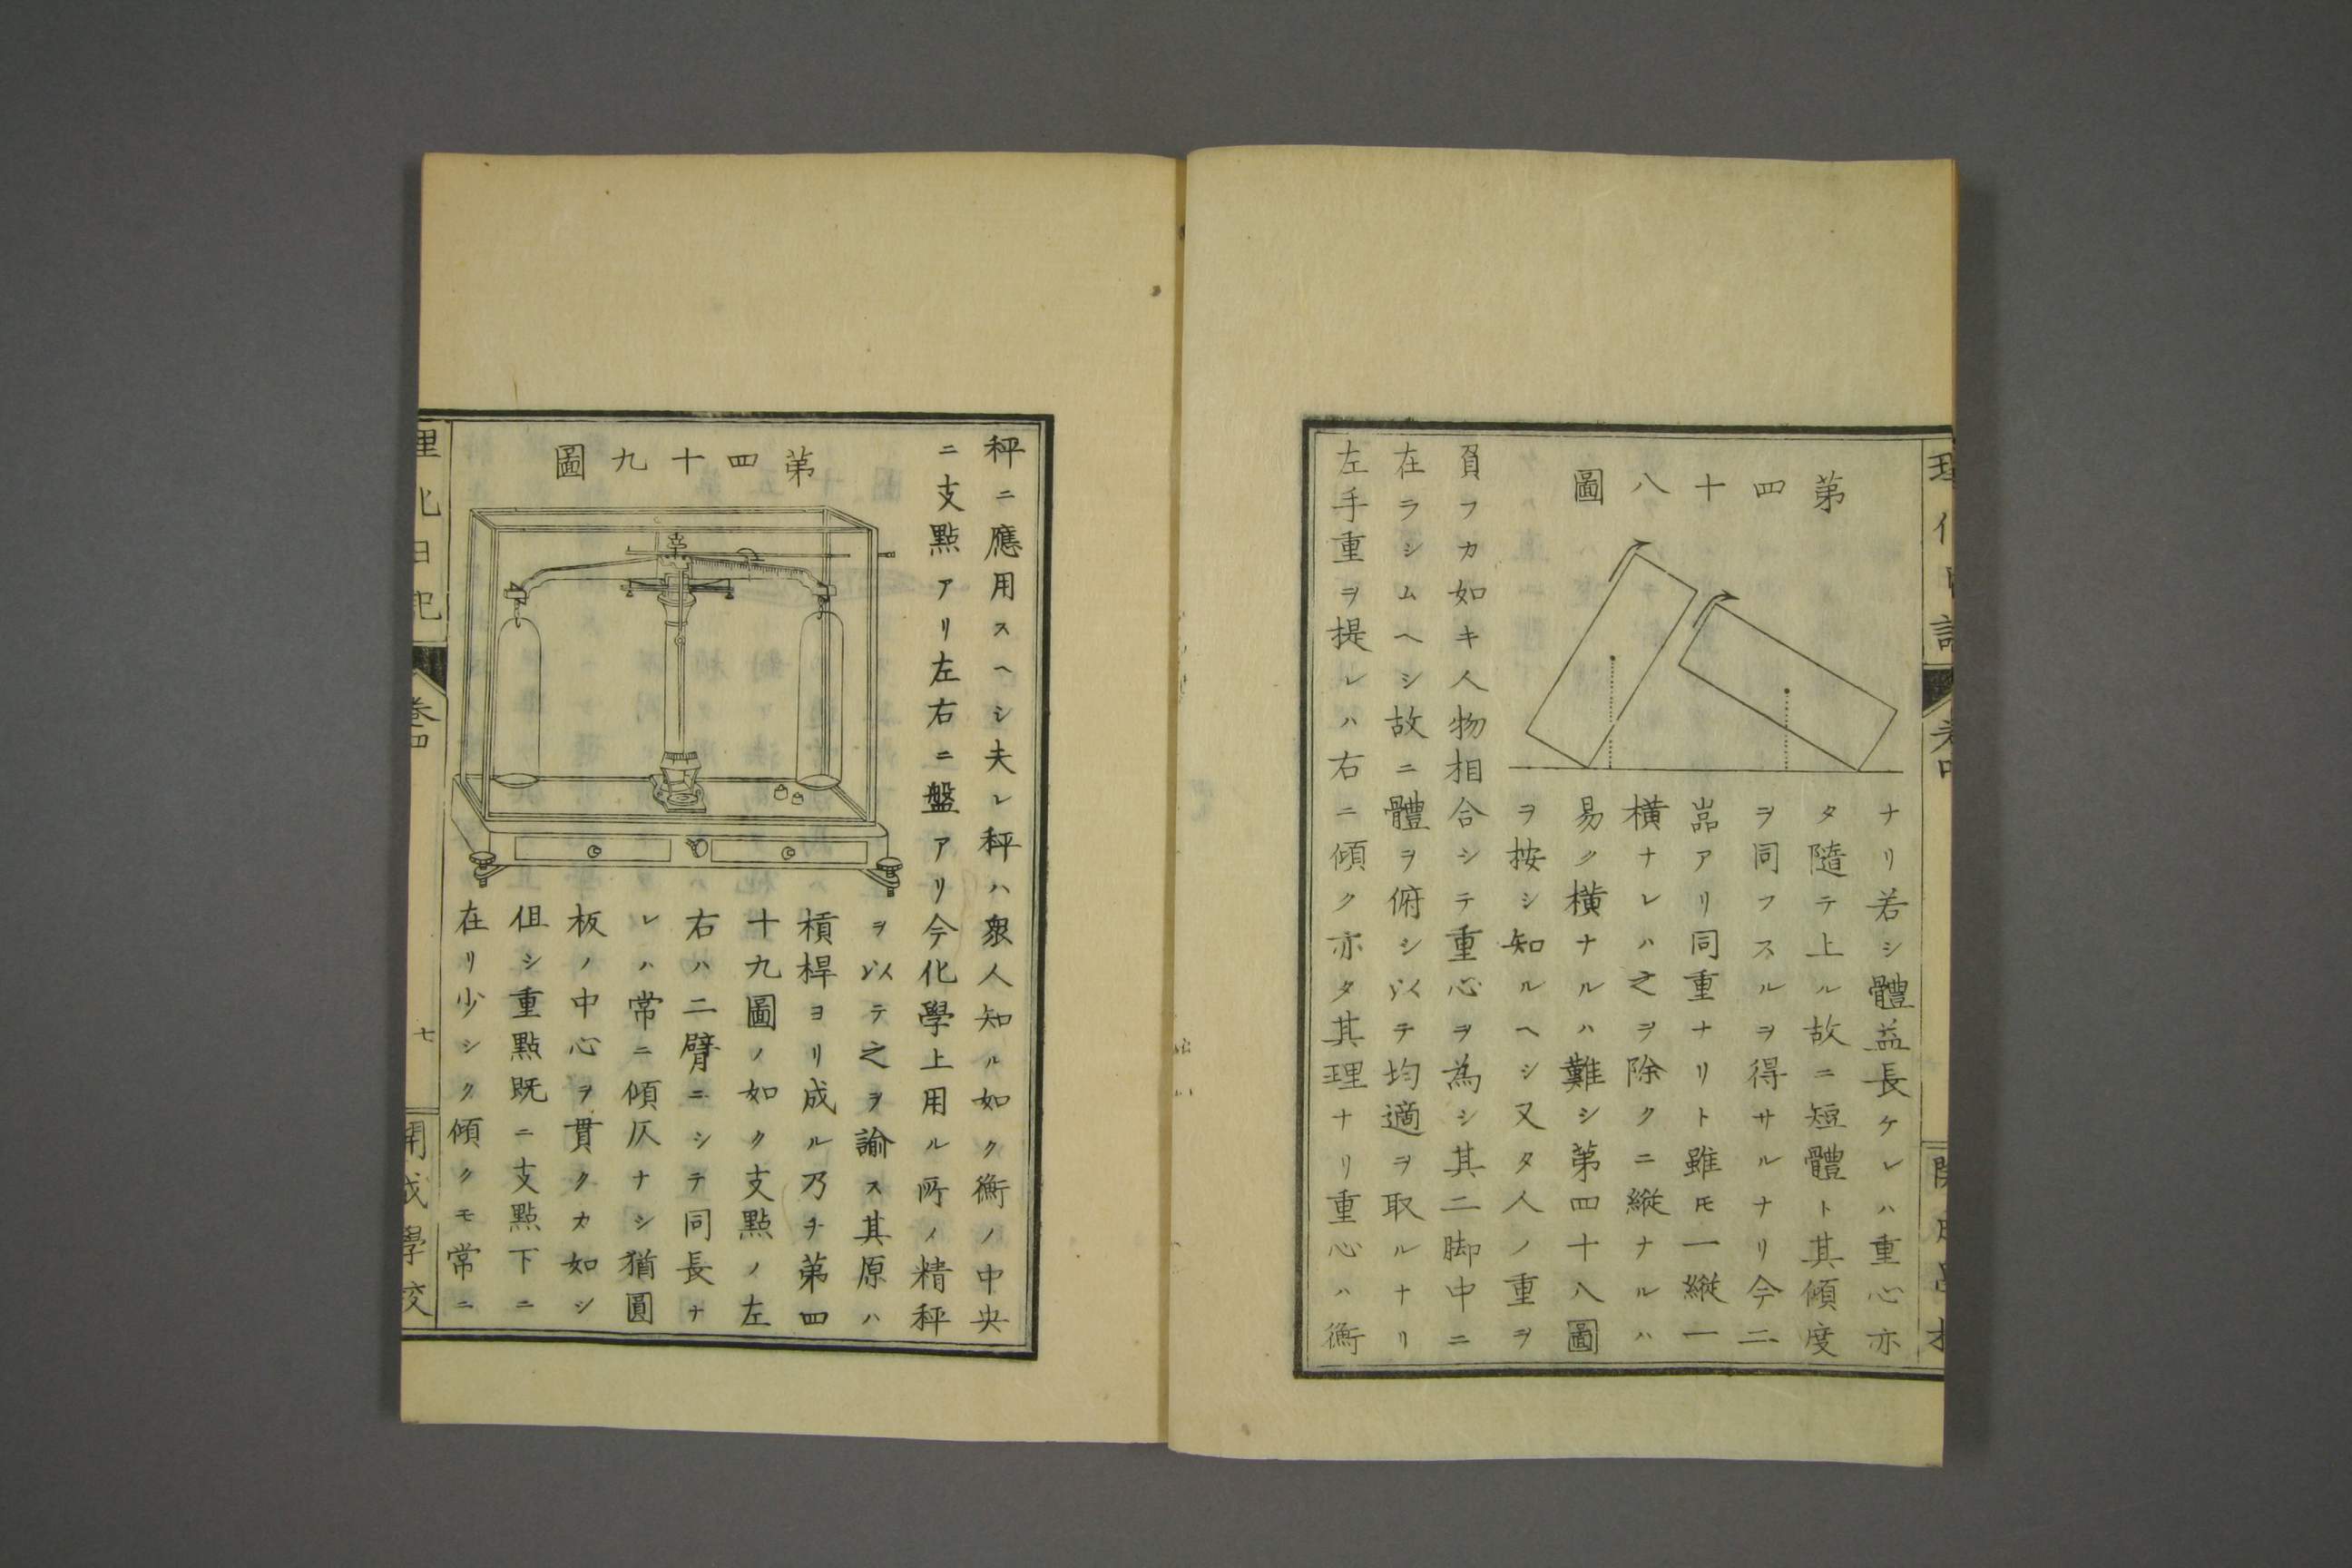 第四十八圖
ナリ若シ體益長ケレハ重心亦
タ隨テ上ル故ニ短體ト其傾度
ヲ同フスルヲ得サルナリ今二
品アリ同重ナリト雖モ一縱一
横ナレハ之ヲ除クニ縱ナルハ
易ク横ナルハ難シ第四十八圖
ヲ按シ知ルヘシ又タ人ノ重ヲ
負フカ如キ人物相合シテ重心ヲ為シ其二脚中ニ
在ラシムヘシ故ニ體ヲ俯シ以テ均適ヲ取ルナリ
左手重ヲ提レハ右ニ傾ク亦タ其理ナリ重心ハ衡
秤ニ應用スヘシ夫レ秤ハ衆人知ル如ク衡ノ中央
ニ支點アリ左右ニ盤アリ今化學上用ル所ノ精秤
第四十九圖
ヲ以テ之ヲ諭ス其原ハ
槓桿ヨリ成ル乃チ第四
十九圖ノ如ク支點ノ左
右ハ二臂ニシテ同長ナ
レハ常ニ傾仄ナシ猶圓
板ノ中心ヲ貫クカ如シ
但シ重點既ニ支點下ニ
在リ少シク傾クモ常ニ
理化日記
卷四
七
開成學校